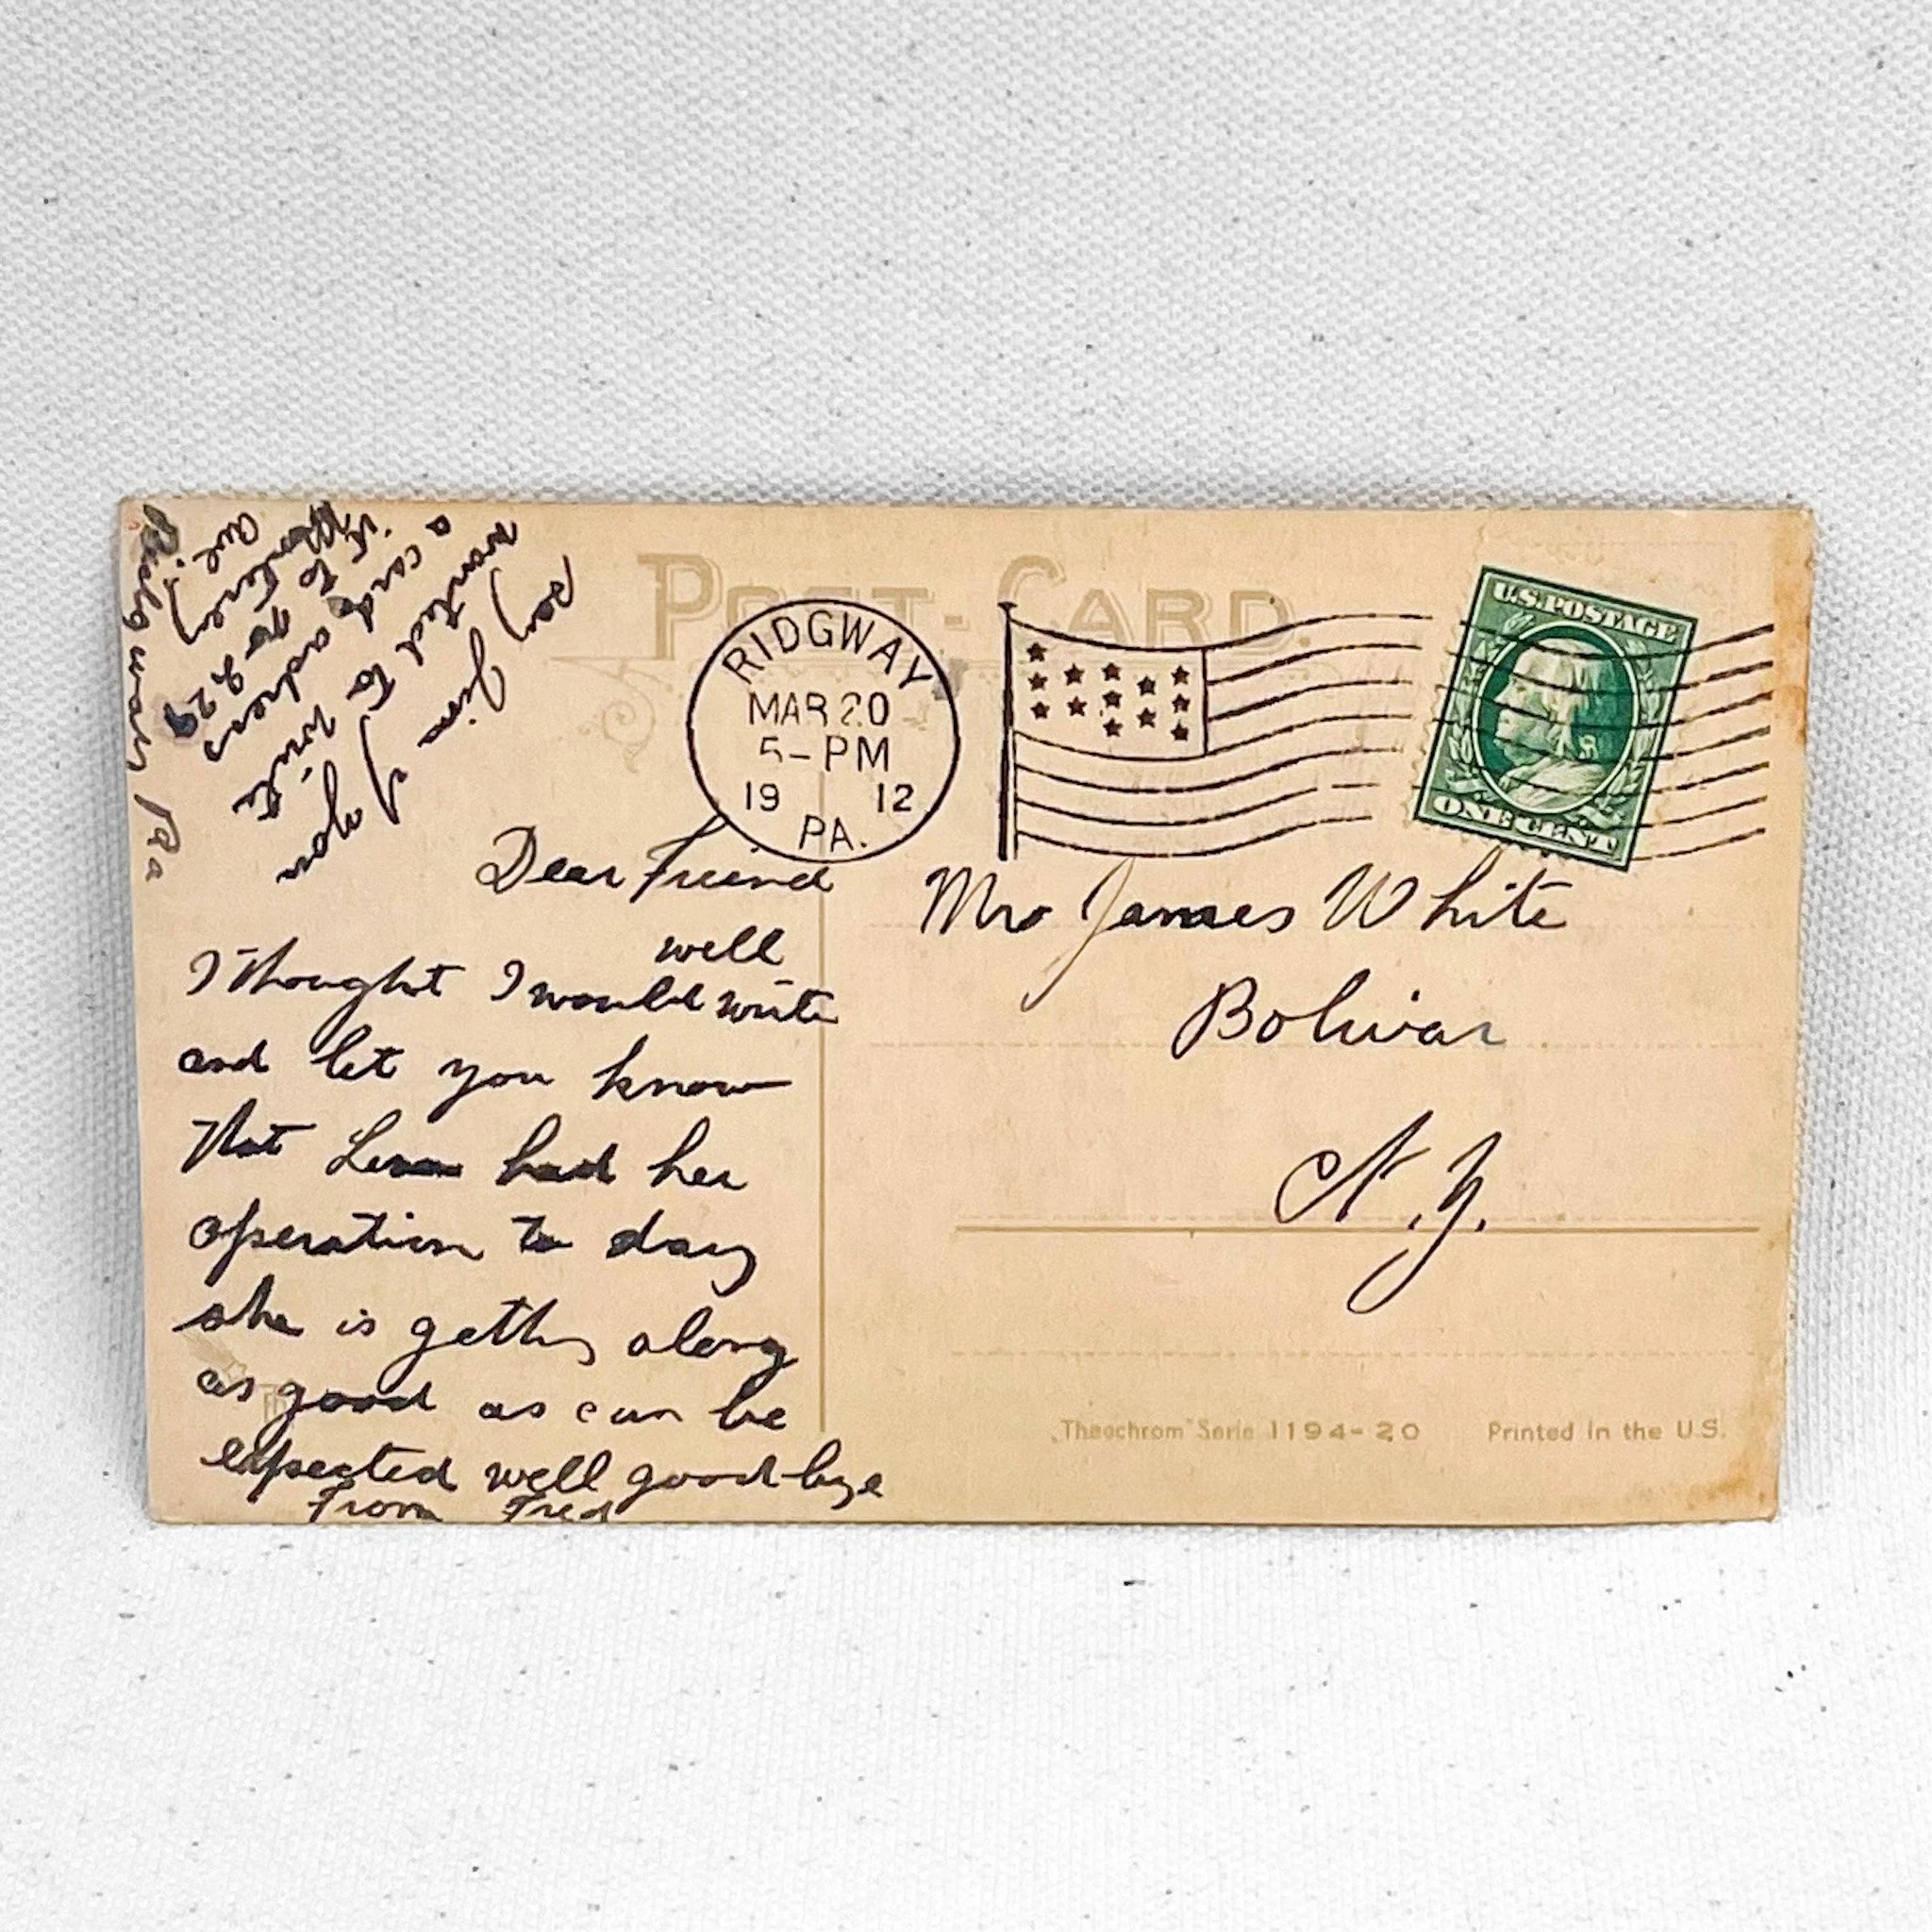 POST-CARD.
RIDGWAY
MAR 20
5-PM
19 12
PA.
U.S. POSTAGE
ONE CENT
Dear Friend
well
I thought I would write
and let you know
that Lena had her
operation to day
she is getting along
as good as can be
expected well good-bye
From Fred
say Jim if you
wanted to write
a card adress
it to No 229
Ave
Ridgway Pa
Mr James White
Bolivar
N.Y.
„Theochrom" Serie 1194-20 Printed in the U.S.